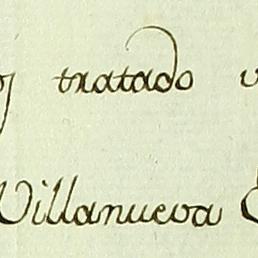 tratado
Villanueva